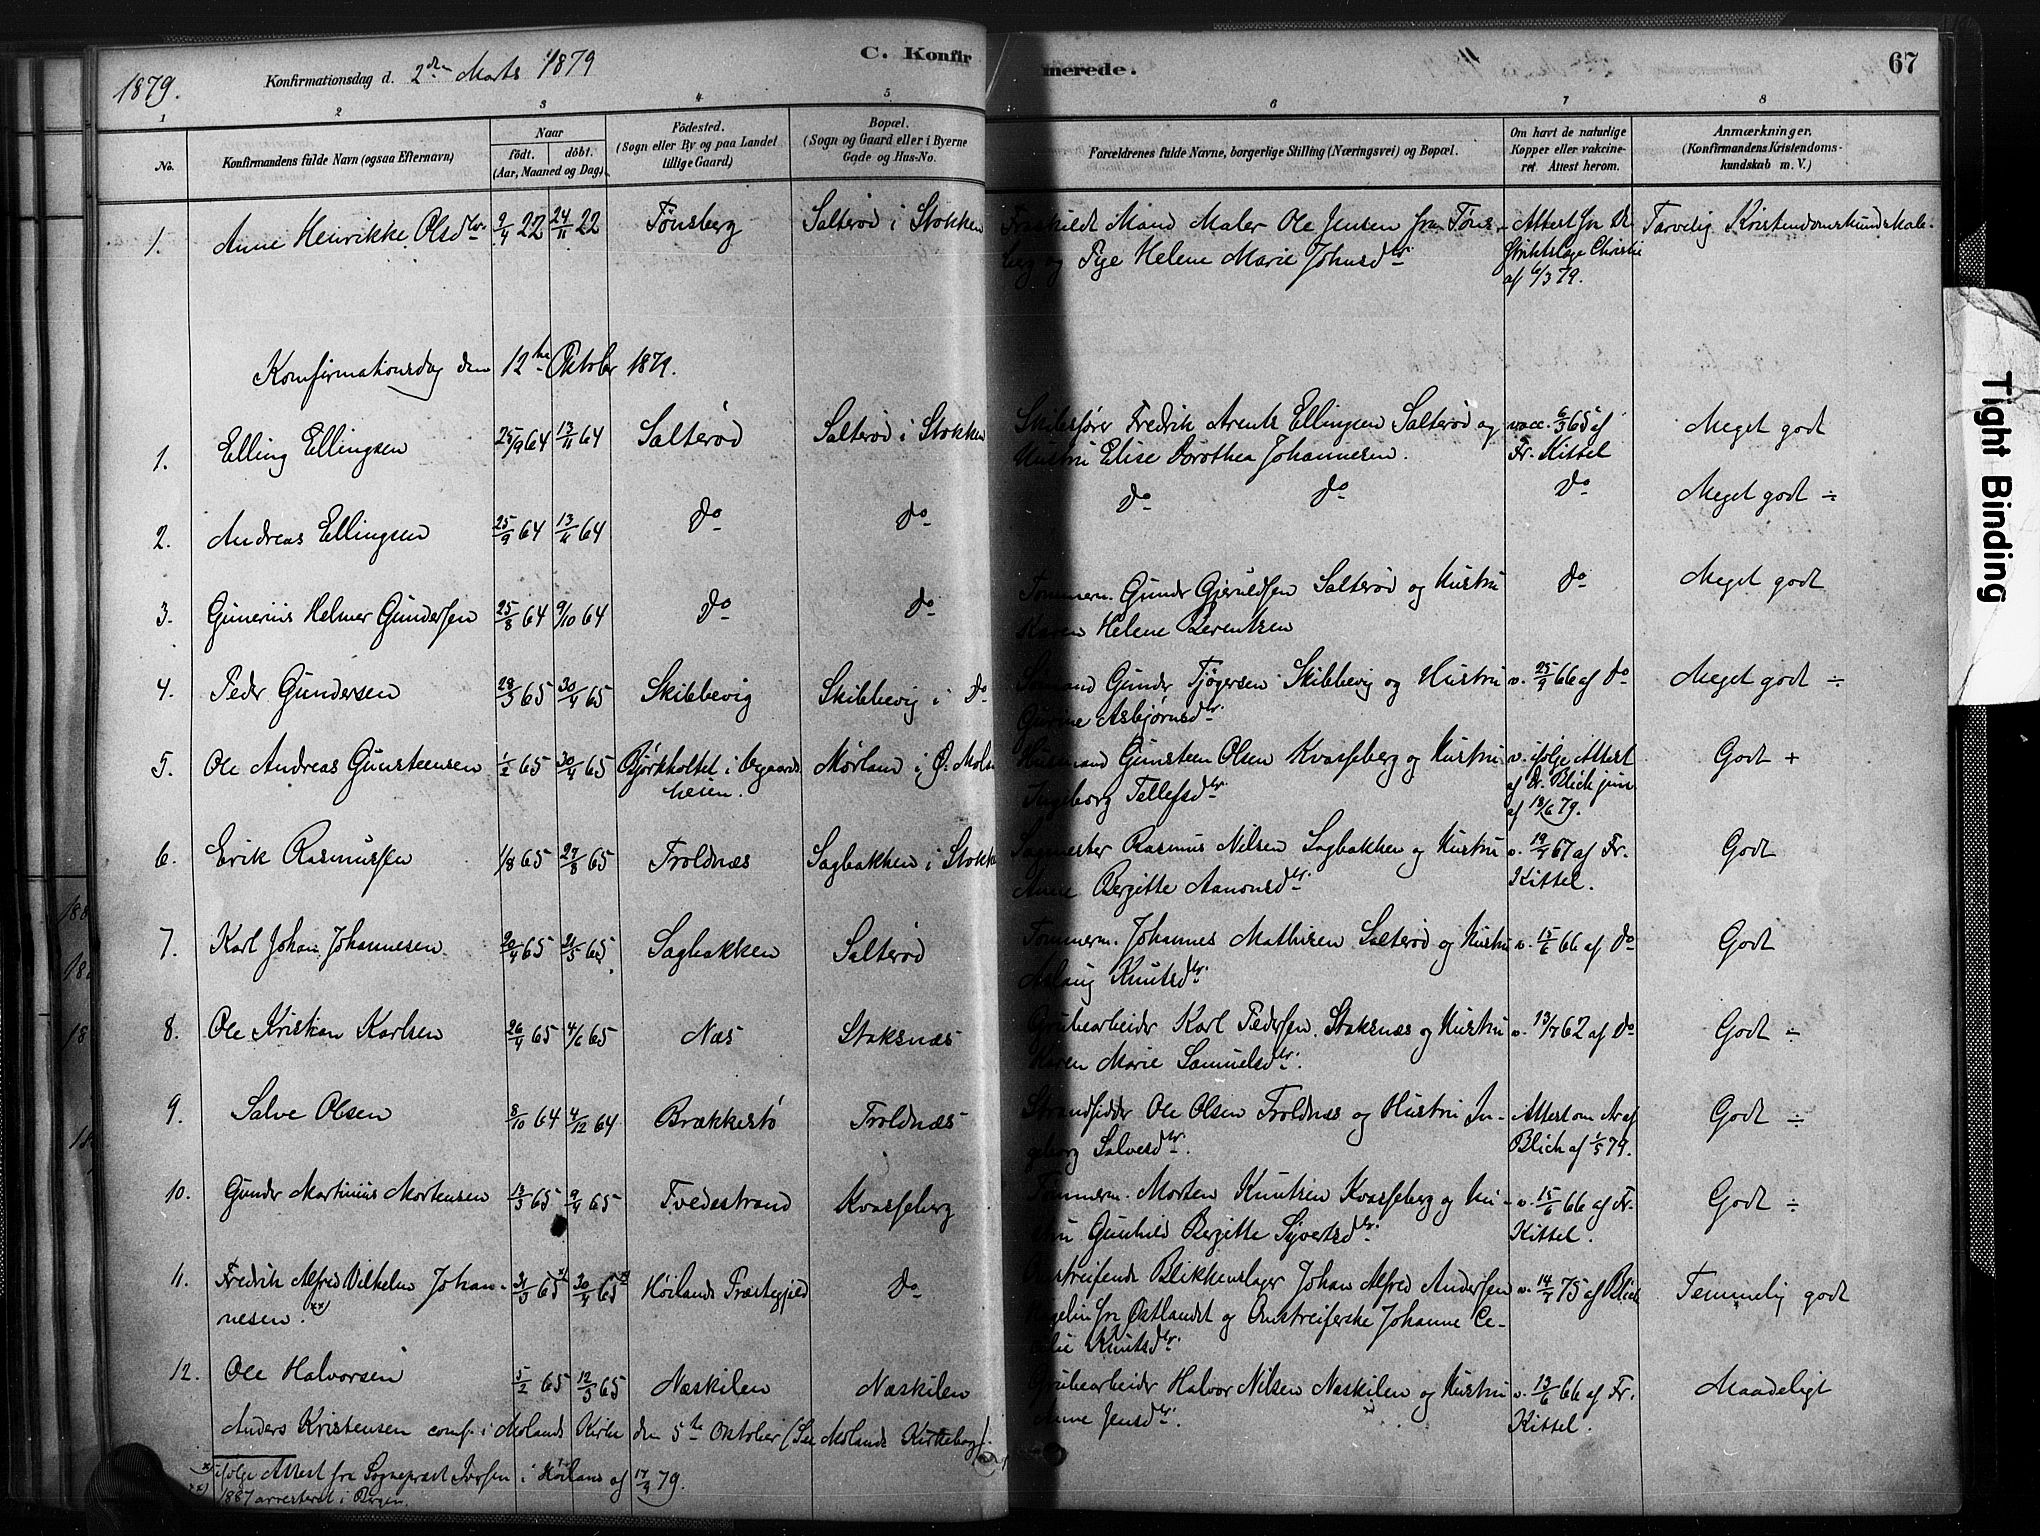 1879. Konfirmationsdag d. 2den Marts 1879 C. Konfirmerede. 67
1 2 3 4 5 6 7 8
No. Konfirmandens fulde Navn (ogsaa Efternavn) Naar födt. döbt. (Aar, Maaned og Dag). Födested. (Sogn eller By og paa Landet tillige Gaard) Bopæl. (Sogn og Gaard eller i Byerne Gade og Hus-No. Forældrenes fulde Navne, borgerlige Stilling (Næringsvei) og Bopæl. Om havt de naturlige Kopper eller vakcineret. Attest herom. Anmærkninger, (Konfirmandens Kristendomskundskab m. V.)
1. Anne Henrikke Olsdtr. 9/4 22 24/11 22 Tønsberg Salterød i Stokken Fraskildt Mand Maler Ole Jensen fra Tøns-
berg og Pige Helene Marie Johnsdtr. Attest fra Di-
striktslæge Christie
af 6/3 79. Tarvelig Kristendomskundskab.
Konfirmationsdag den 12te Oktober 1879.
1. Elling Ellingsen 25/9 64 13/11 64 Salterød Salterød i Stokken Skibsfører Fredrik Arents Ellingsen Salterød og
Hustru Elise Dorothea Johannesen. vacc. 6/3 65 af
Fr. Kittel Meget godt
2. Andreas Ellingsen 25/9 64 13/11 64 do do do do do Meget godt ÷
3. Gunerius Helmer Gundersen 25/8 64 9/10 64 do do Tømmerm. Gunder Gjeruldsen Salterød og Hustru
Karen Helene Berentsen do Meget godt
4. Peder Gundersen 28/3 65 30/4 65 Skibbevig Skibbevig i do Sømand Gunder Tjøgersen Skibbevig og Hustru
Gurine Asbjørnsdtr. v. 25/9 66 af do Meget godt ÷
5. Ole Andreas Gunsteensen 1/2 65 30/4 65 Bjørkholtet i Øgaards-
heien. Mørland i Ø. Mol. Husmand Gunsteen Olsen Kvasseberg og Hustru
Ingeborg Tellefsdtr. v. ifølge Attest
af Dr. Blich jun
af 18/6 79. Godt +
6. Erik Rasmussen 1/8 65 27/8 65 Troldnæs Sagbakken i Stokk Sagmester Rasmus Nilsen Sagbakken og Hustru
Anne Bergitte Aanonsdtr. v. 19/7 67 af Fr.
Kittel. Godt
7. Karl Johan Johannesen 20/4 65 21/5 65 Sagbakken Salterød Tømmerm. Johannes Mathisen Salterød og Hustru
Aslaug Knutsdtr. v. 15/6 66 af do Godt
8. Ole Kristian Karlsen 26/4 65 4/6 65 Næs Staksnæs Grubearbeider Karl Pedersen Staksnæs og Hustru
Karen Marie Samuelsdtr. v. 13/7 62 af do Godt ÷
9. Salve Olsen 8/10 64 4/12 64 Brækkestø Troldnæs Strandsidder Ole Olsen Troldnæs og Hustru In-
geborg Salvesdtr. Attest om Ar af
Blich af 1/5 79. Godt ÷
10. Gunder Martinius Mortensen 13/3 65 9/4 65 Tvedestrand Kvasseberg Tømmerm. Morten Knutsen Kvasseberg og Hu-
stru Gunhild Bergitte Syvertsdtr. v. 15/6 66 af Fr.
Kittel. Godt ÷
11. Fredrik Alfred Vilhelm Johan-
nesen. xx) 31/3 65 x) 30/4 65 x) Høilands Præstegjeld do Omstreifende Blikkenslager Johan Alfred Andersen
fra Østlandet og Omstreiferske Johanne Ce-
cilie Knutsdtr. v. 14/7 75 af Blich Temmelig godt
12. Ole Halvorsen 5/2 65 12/3 65 Næskilen Næskilen Grubearbeider Halvor Nilsen Næskilen og Hustru
Anne Jensdtr. v. 13/6 66 af Fr.
Kittel. Maadeligt
Anders Kristensen conf. i Molands Kirke den 5te Oktober (See Molands Kirkebog).
x) ifølge Attest fra Sogneprest Iversen i Høiland af 17/9 79.
xx) 1887 arresteret i Bergen.
Tight Binding